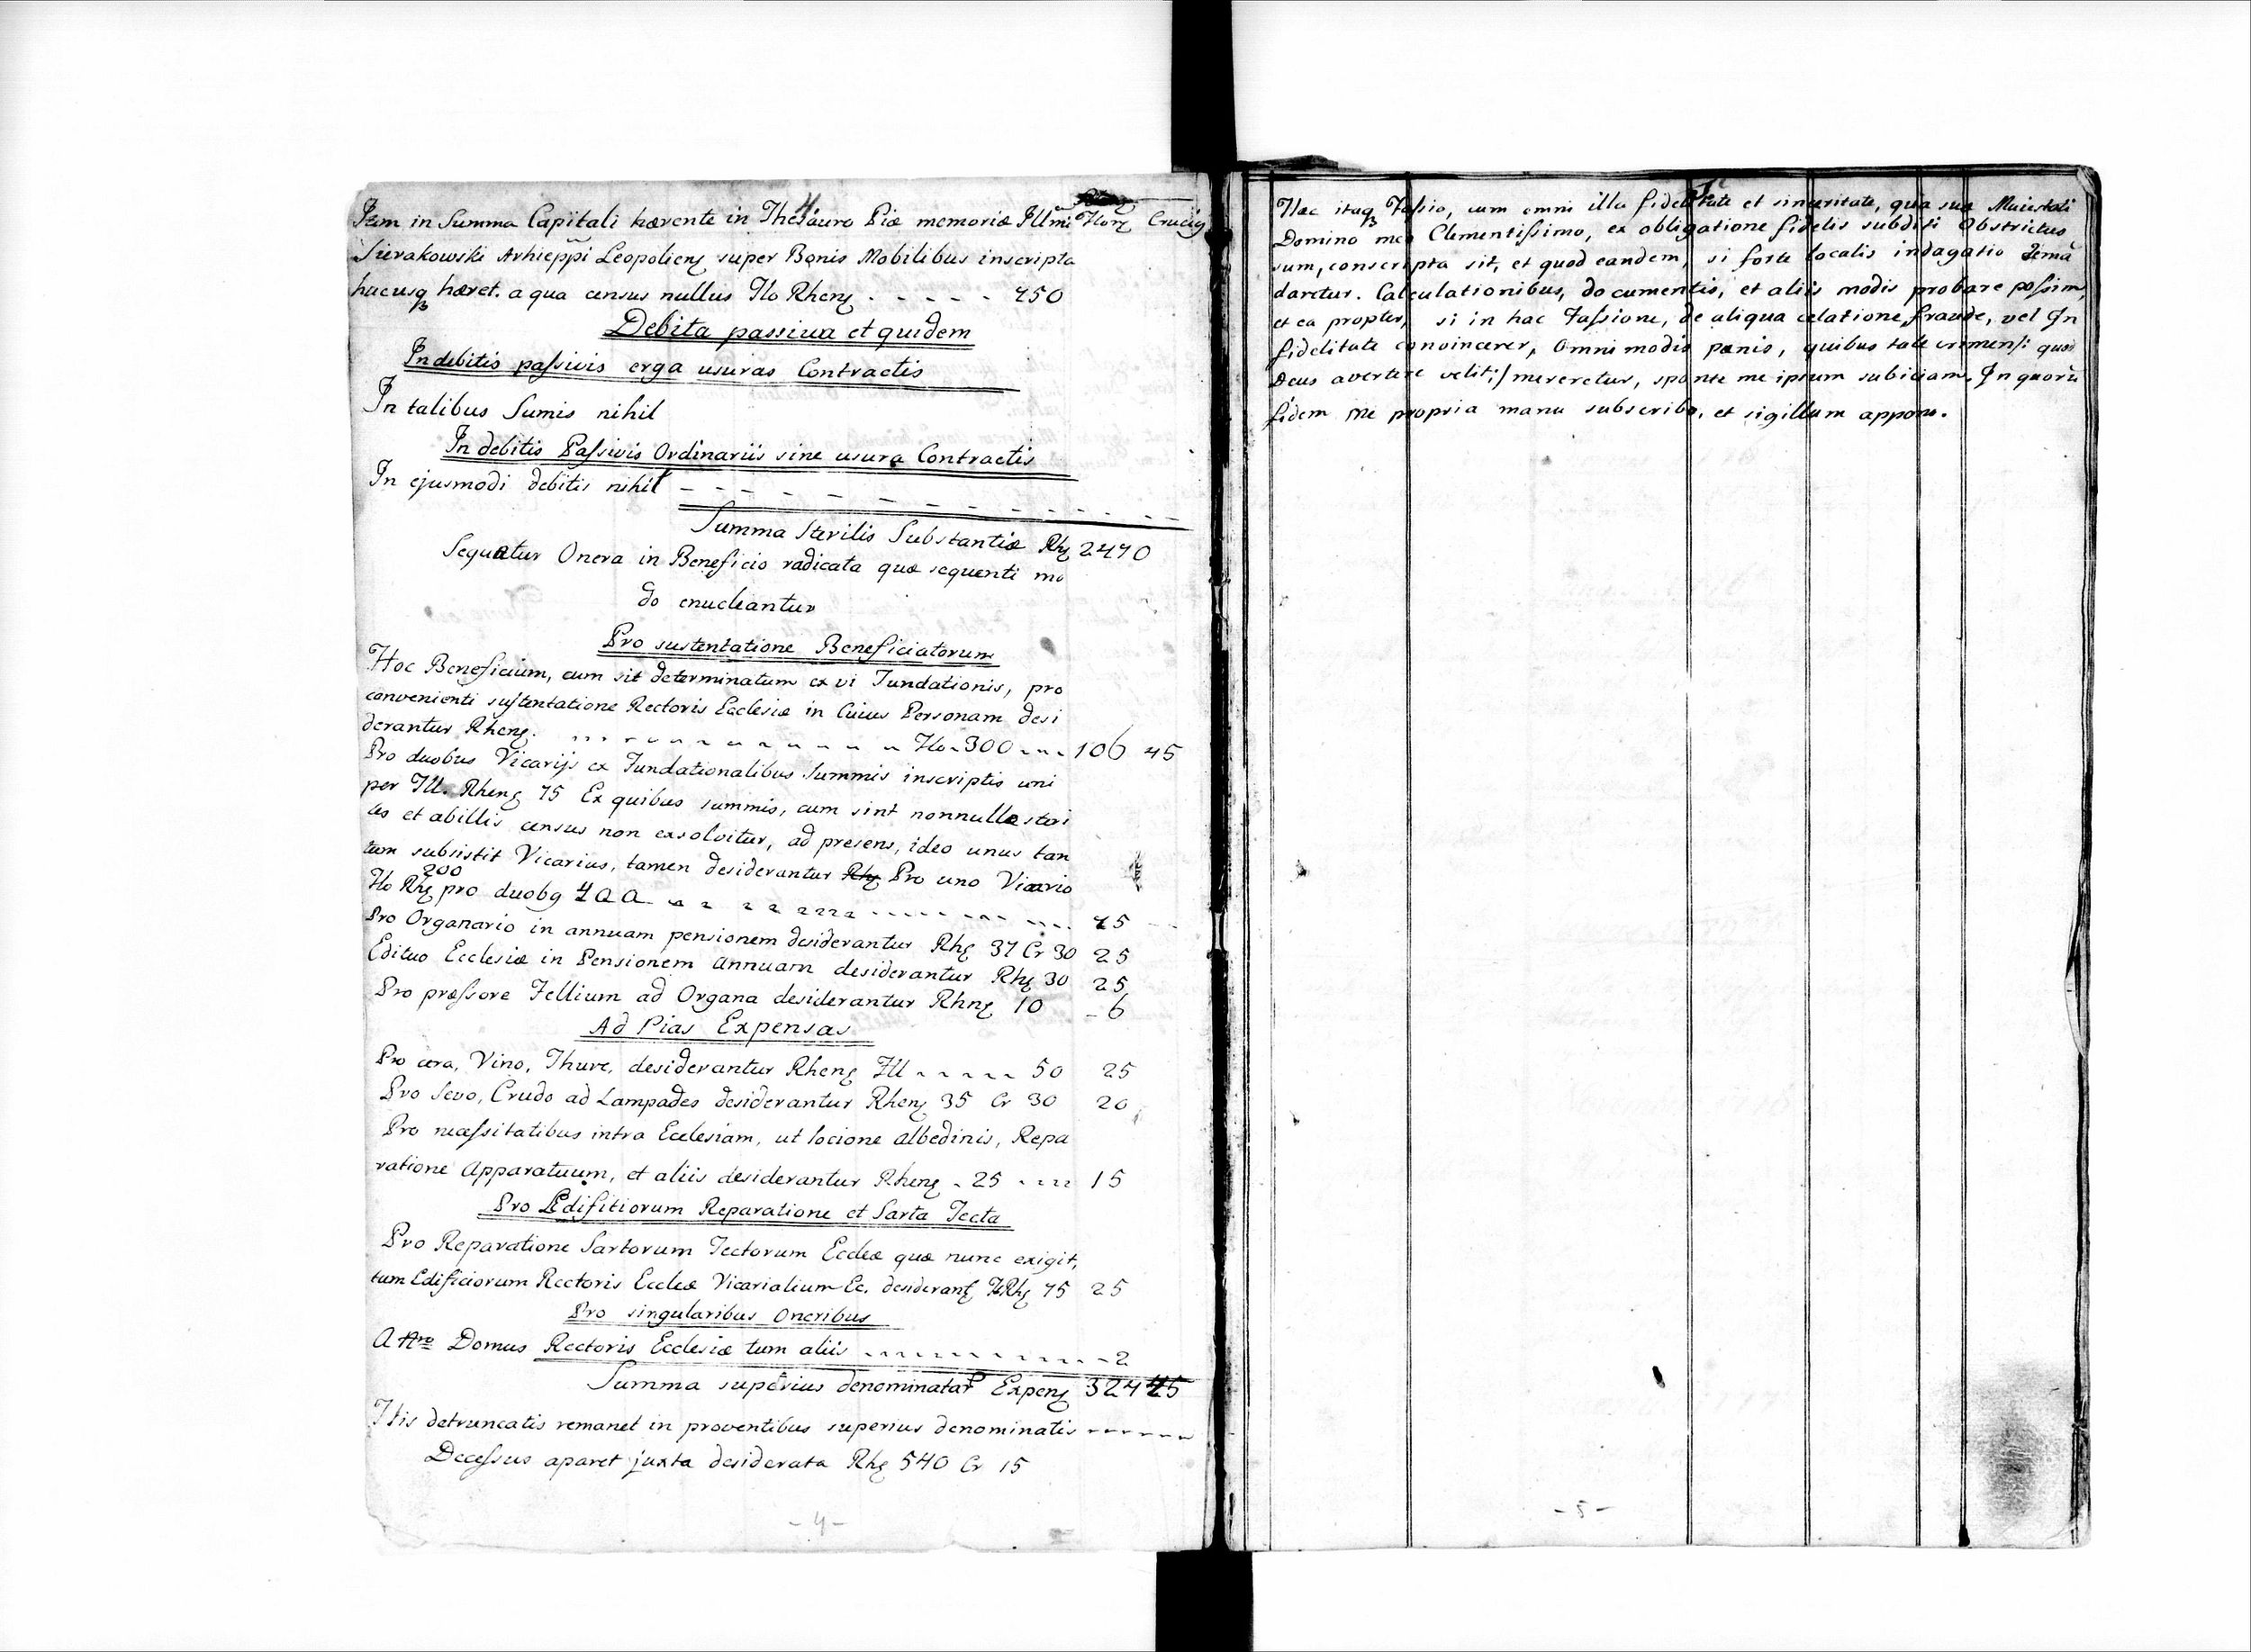 4
Item in Summa Capitali hærente in Thesauro Piæ memoriæ Illmi Flory Crucig
Sierakowski Arhieppi Leopolieng super Bonis Mobilibus inscripta
hucusq hæret. a qua census nullus Flo Rheng . - - - - 750
Debita passiva et quidem
In debitis passivis erga usuras Contractis
In talibus Sumis nihil
In debitis Passivis Ordinariis sine usura Contractis
In ejusmodi debitis nihil - - - - - - - - - - - - -
Summa Sterilis Substantiæ Rhg 2470
Sequntur Onera in Beneficio radicata quæ sequenti mo
do enucleantur
Pro sustentatione Beneficiatorum
Hoc Beneficium, cum sit determinatum ex vi Fundationis, pro
convenienti sustentatione Rectoris Ecclesiæ in Cuius Personam desi
derantur Rheng. - - - - - - - - - - Flo - 300 - - - 106 45
Pro duobus Vicarijs ex Fundationalibus Summis inscriptis uni
per Fll. Rheng 75 Ex quibus summis, cum sint nonnullæ steri
les et abillis census non exsolvitur, ad presens, ideo unus tan
tum subsistit Vicarius, tamen desiderantur Rhg Pro uno Vicario
200
Flo Rhg pro duobg 400 - - - - - - - - - - - - 75 - -
Pro Organario in annuam pensionem desiderantur Rhg 37 Cr 30 25
Edituo Ecclesiæ in Pensionem Annuam desiderantur Rhg 30 25
Pro præssore Fellium ad Organa desiderantur Rhng 10 - 6
Ad Pias Expensas
Pro cera, Vino, Thure, desiderantur Rheng Fll - - - - - 50 25
Pro Sevo, Crudo ad Lampades desiderantur Rheng 35 Cr 30 20
Pro necessitatibus intra Ecclesiam, ut locione albedinis, Repa
ratione Apparatuum, et aliis desiderantur Rheng - 25 - - - - 15
Pro Edifitiorum Reparatione et Sarta Tecta
Pro Reparatione Sartorum Tectorum Eccleæ quæ nunc exigit,
tum Edificiorum Rectoris Eccleæ Vicarialium Ec. desiderantg Flo Rhg 75 25
Pro singularibus Oneribus
A Nro Domus Rectoris Ecclesiæ tum aliis - - - - - - - - - - - 2
Summa superius denominatar Expeng 324 45
His detruncatis remanet in proventibus superius denominatis - - - - - -
Decessus aparet juxta desiderata Rhg 540 Cr 15
- 4 -
Hæc itaq Fassio, cum omni illa fidelitate et sinceritate, qua suæ Maiestati
Domino meo Clementissimo, ex obligatione fidelis subditi Obstrictus
sum, conscripta sit, et quod eandem, si forte localis indagatio
daretur. Calculationibus, documentis, et aliis modis probare possim,
et ea propter, si in hac Fassione, de aliqua celatione, fraude, vel In
fidelitate convincerer, Omnimodis pænis, quibus tale crimen /: quod
Deus avertere velit :/ mereretur, sponte me ipsum subiciam. In quorũ
fidem me propria manu subscribo, et sigillum appono.
- 5 -